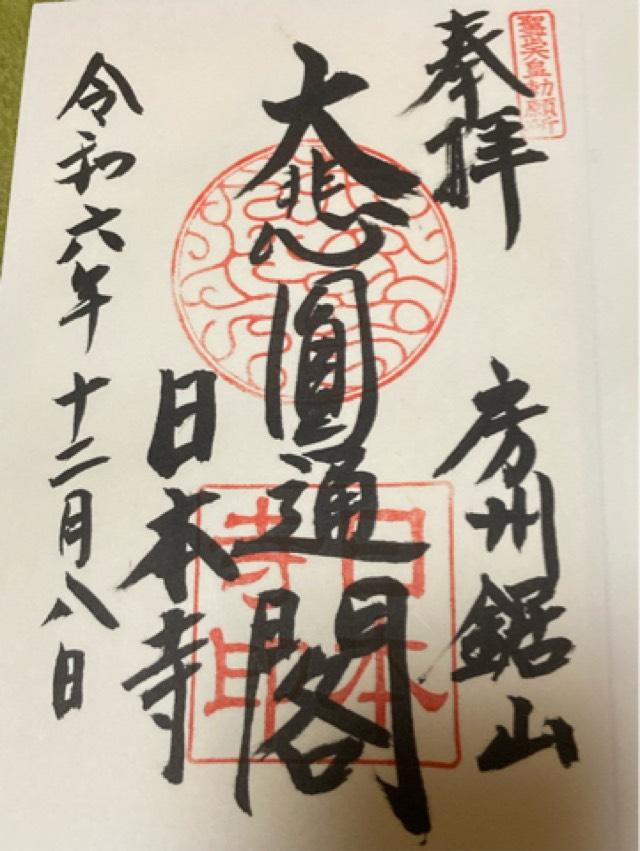 聖武天皇勅願所
奉拝
房州鋸山
大悲圓通閣
日本寺
日本寺印
令和六年十二月八日